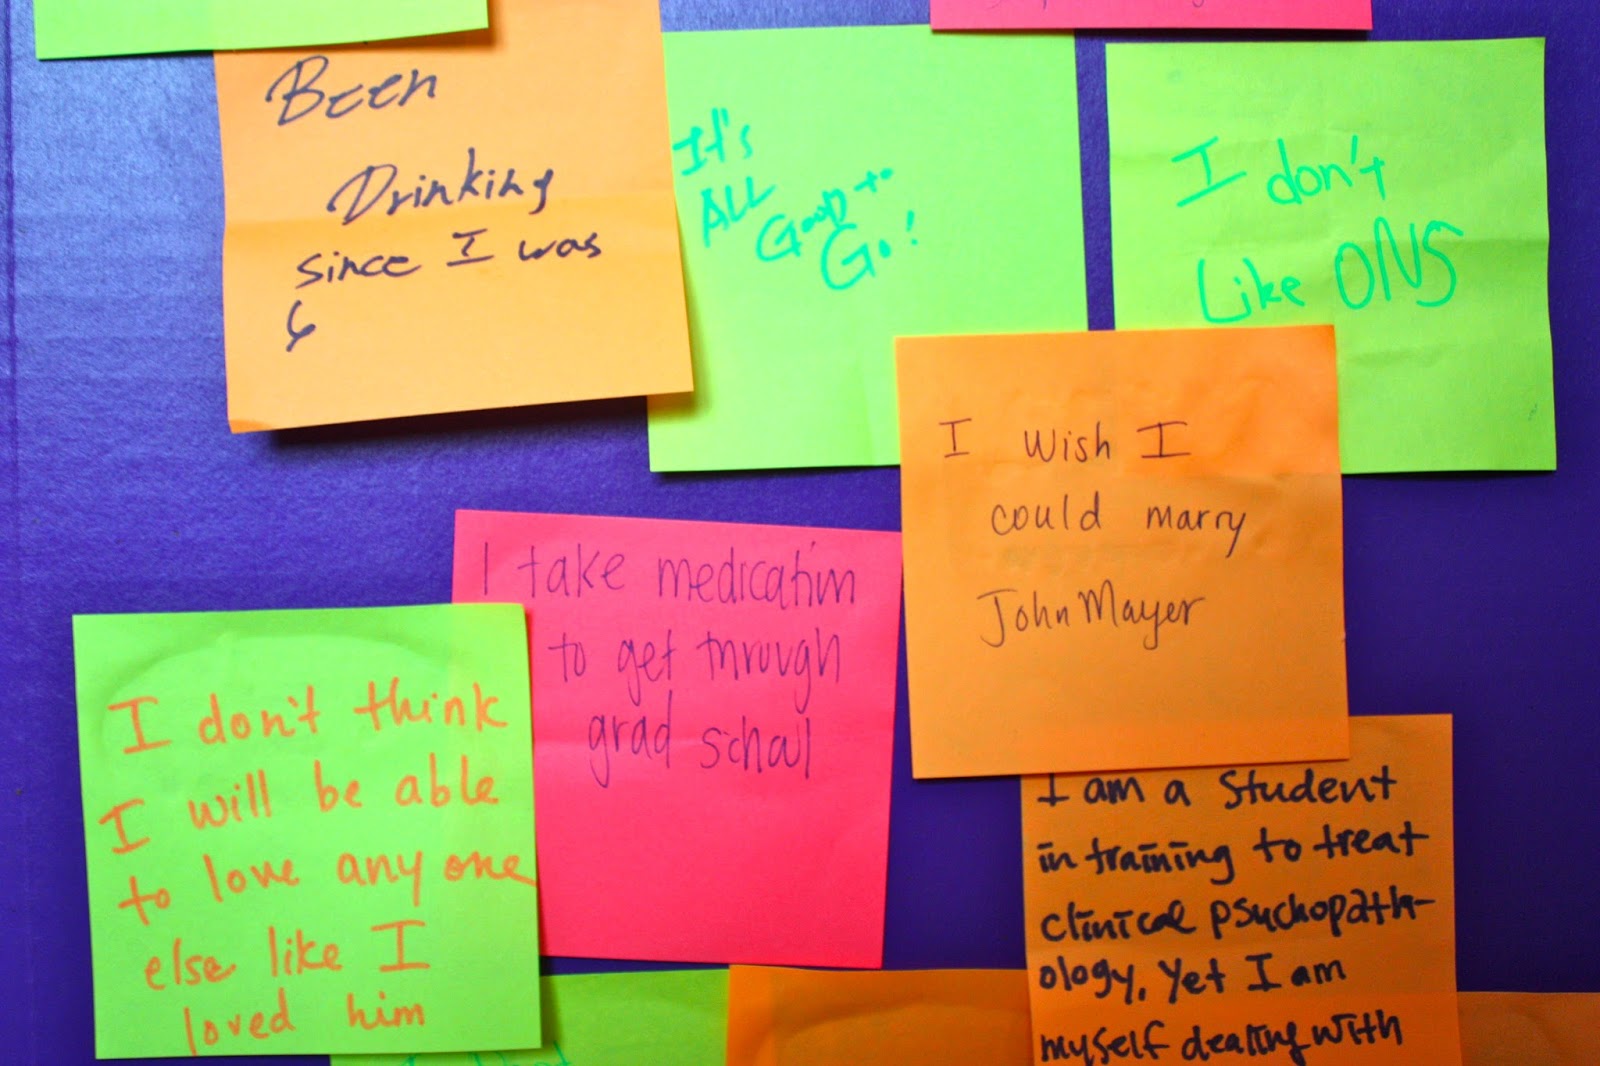 Been
Drinking
since I was
6
It's
ALL
Good to
Go!
I don't
Like ONS
I wish I
could marry
John Mayer
I take medication
to get through
grad school
I don't think
I will be able
to love any one
else like I
loved him
I am a student
in training to treat
clinical psychopath-
ology, yet I am
myself dealing with